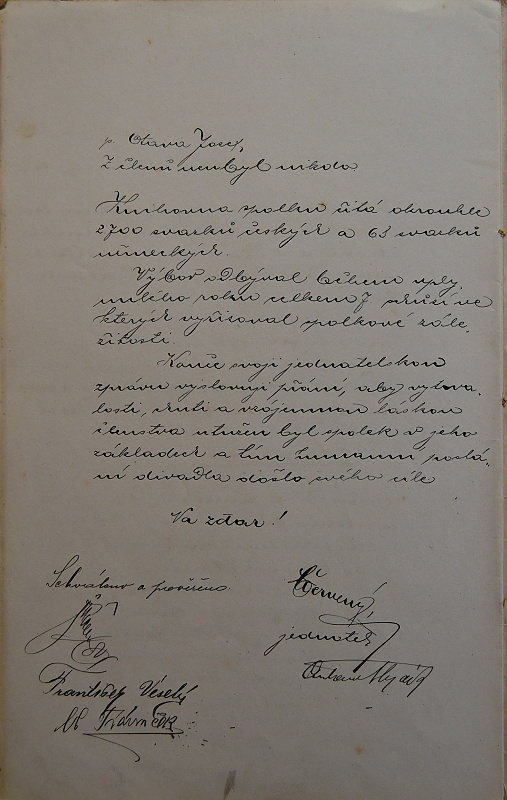 p. Otava Josef,
Z členů nebyl nikdo
Knihovna spolku čítá okrouhle
2700 svazků českých a 63 svazků
německých.
Výbor odbýval během uply-
nulého roku celkem 7 schůzí ve
kterých vyřizoval spolkové zále-
žitosti.
Konče svoji jednatelskou
zprávu vyslovuji přání, aby vytrva-
losti, chutí a vzájemnou láskou
členstva utužen byl spolek v jeho
základech a tím humanní poslá-
ní divadla došlo svého cíle
Na zdar!
Schváleno a prověřeno.
Červený,
jednatel
František Veselý